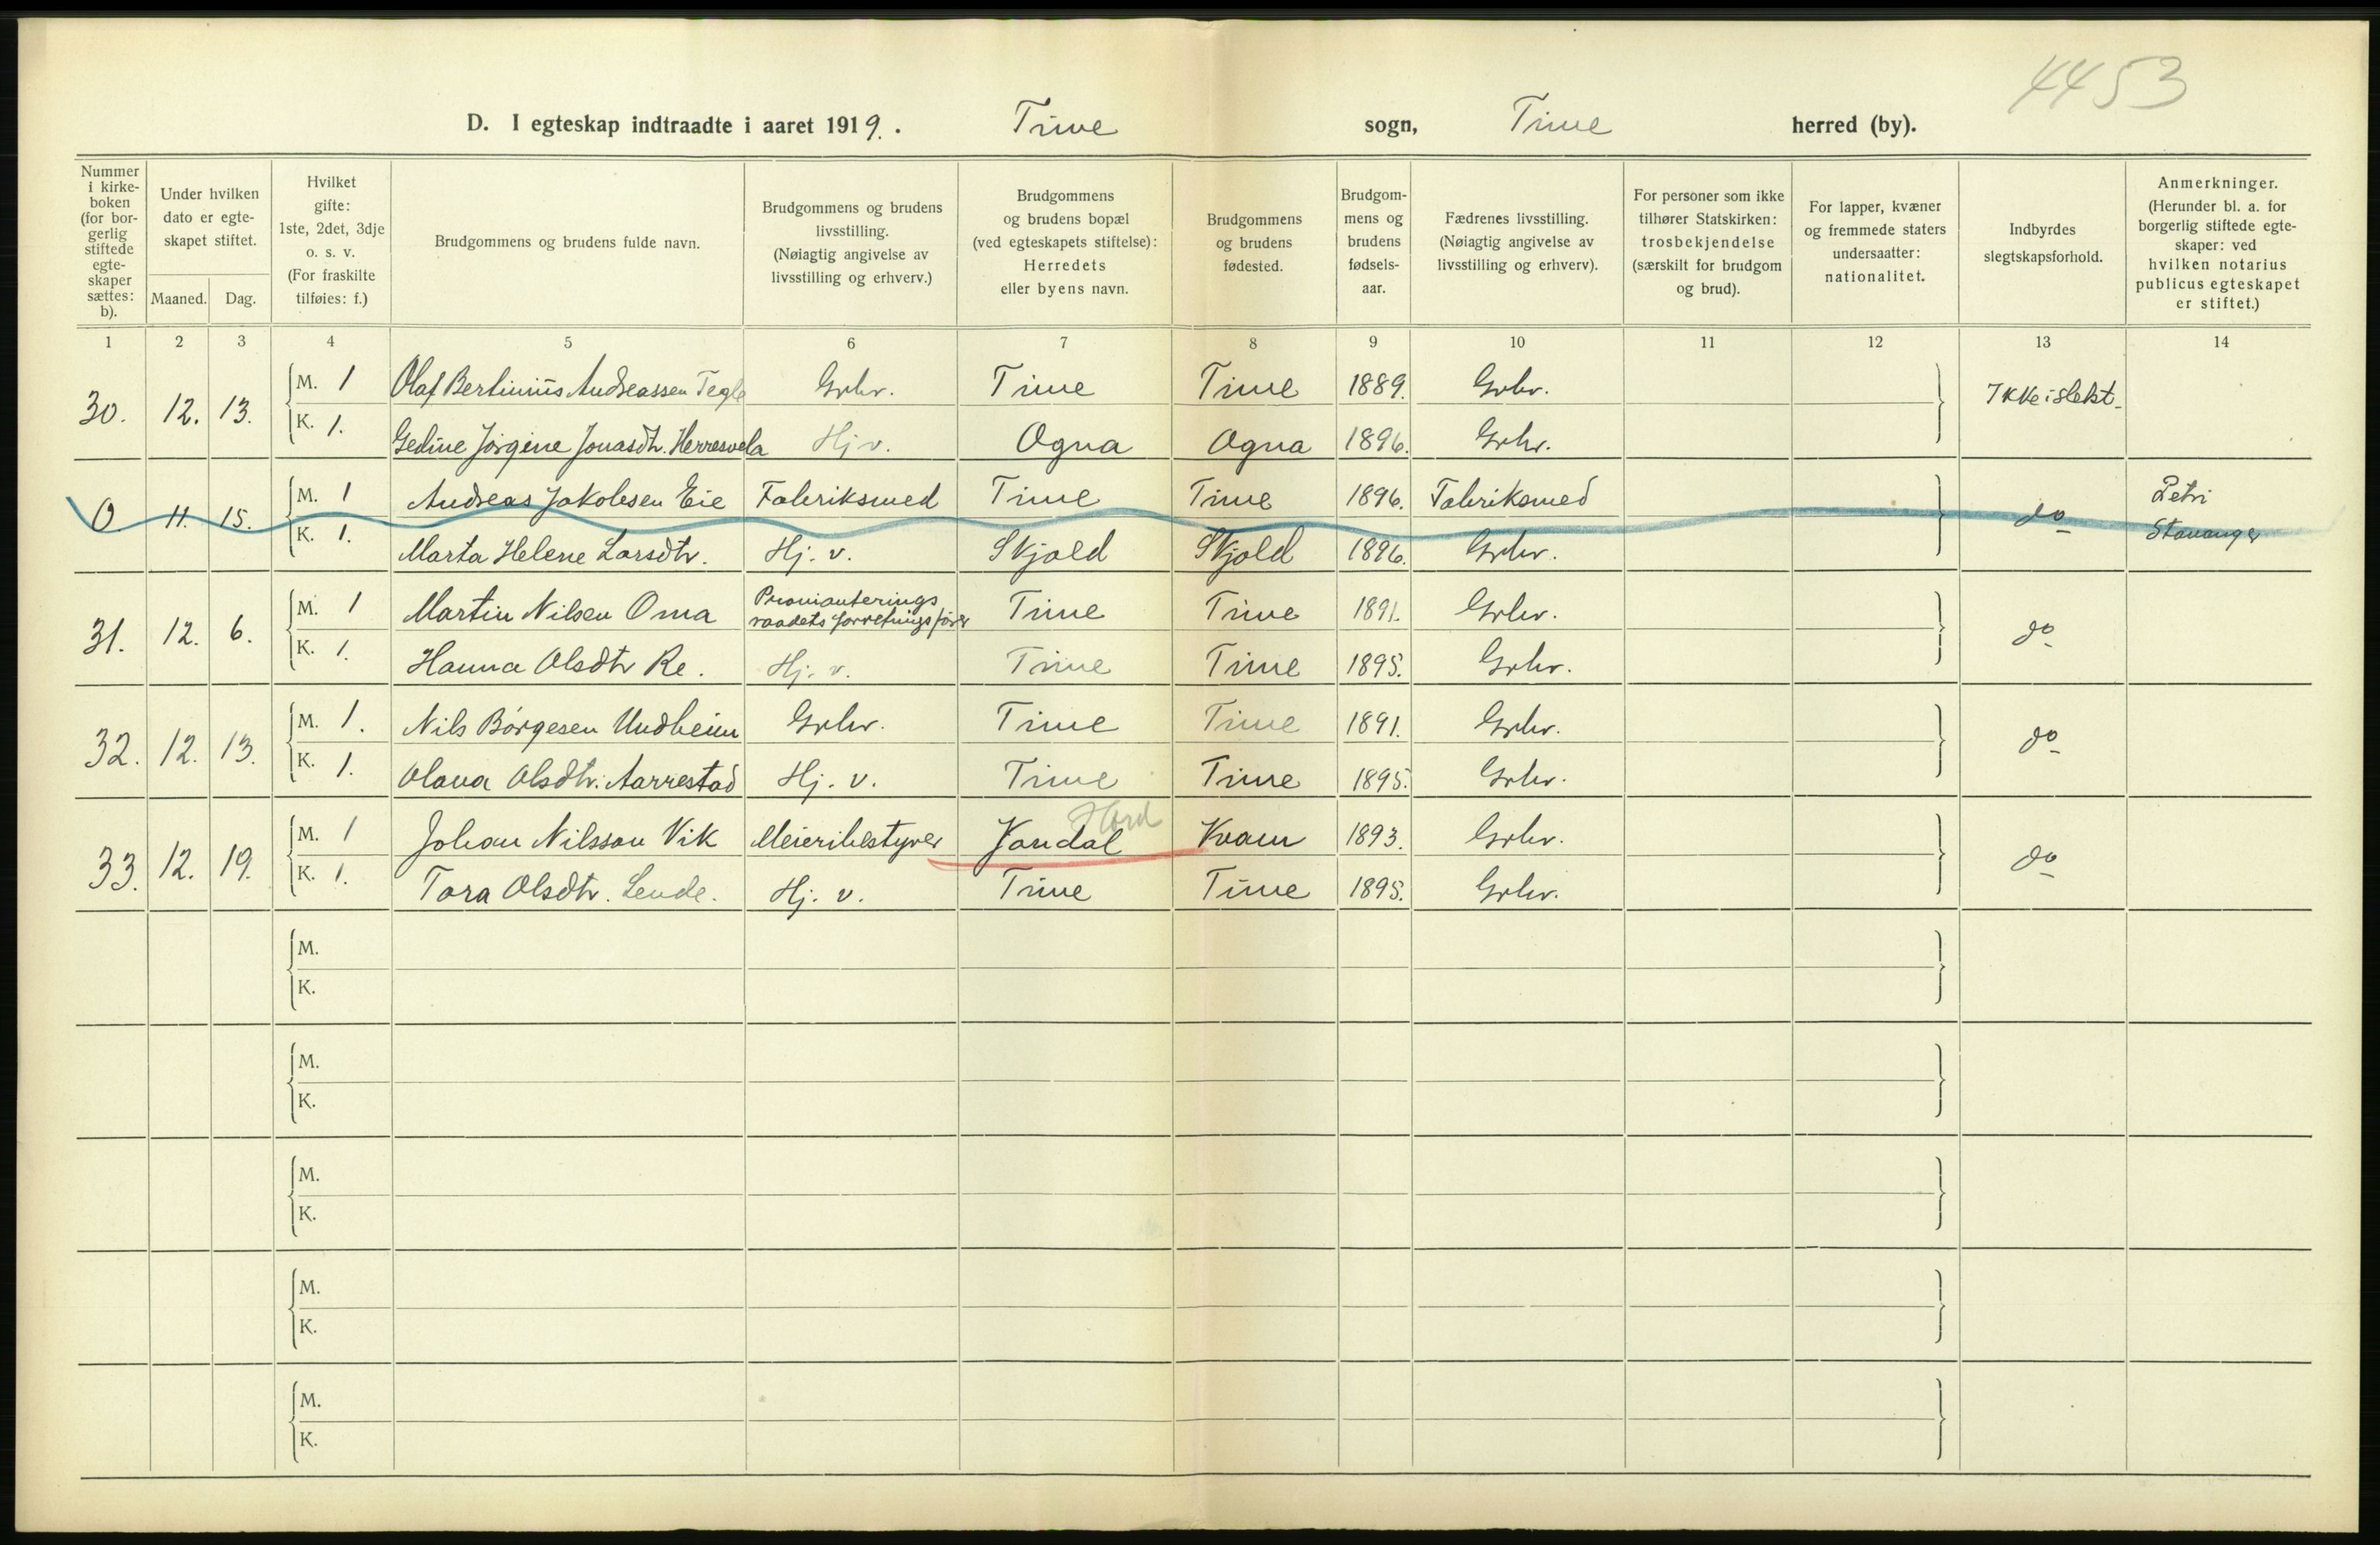 4453
D. I egteskap indtraadte i aaret 1919. Time sogn, Time herred (by).
Nummer i kirke-boken (for bor-gerlig stiftede egte-skaper sættes: b).
Under hvilken dato er egte-skapet stiftet.
Maaned. Dag.
Hvilket gifte: 1ste, 2det, 3dje o. s. v. (For fraskilte tilføies: f.)
Brudgommens og brudens fulde navn.
Brudgommens og brudens livsstilling. (Nøiagtig angivelse av livsstilling og erhverv.)
Brudgommens og brudens bopæl (ved egteskapets stiftelse): Herredets eller byens navn.
Brudgommens og brudens fødested.
Brudgom-mens og brudens fødsels-aar.
Fædrenes livsstilling. (Nøiagtig angivelse av livsstilling og erhverv).
For personer som ikke tilhører Statskirken: trosbekjendelse (særskilt for brudgom og brud).
For lapper, kvæner og fremmede staters undersaatter: nationalitet.
Indbyrdes slegtskapsforhold.
Anmerkninger. (Herunder bl. a. for borgerlig stiftede egte-skaper: ved hvilken notarius publicus egteskapet er stiftet.)
1 2 3 4 5 6 7 8 9 10 11 12 13 14
30. 12. 13. M. 1 Olaf Bertinius Andreassen Tegle Grbr. Time Time 1889. Grbr. Ikke i slekt
K. 1. Gedine Jørgine Jonasdtr. Herresvela Hj v. Ogna Ogna 1896. Grbr.
0 11. 15. M. 1 Andreas Jakobsen Eie Fabriksmed Time Time 1896. Fabriksmed do Petri Stavanger
K. 1. Marta Helene Larsdtr. Hj. v. Skjold Skjold 1896. Grbr.
31. 12. 6. M. 1 Martin Nilsen Oma Provianterings raadets forretningsfører Time Time 1891. Grbr. do
K. 1. Hanna Olsdtr Re. Hj. v. Time Time 1895. Grbr.
32. 12. 13. M. 1. Nils Børgesen Undheim Grbr. Time Time 1891. Grbr. do
K. 1. Olava Olsdtr. Aarrestad Hj. v. Time Time 1895. Grbr.
Hord
33. 12. 19. M. 1 Johan Nilsson Vik Meieribestyrer Jondal Kvam 1893. Grbr. do
K. 1. Tora Olsdtr. Lende. Hj. v. Time Time 1895. Grbr.
M.
K.
M.
K.
M.
K.
M.
K.
M.
K.